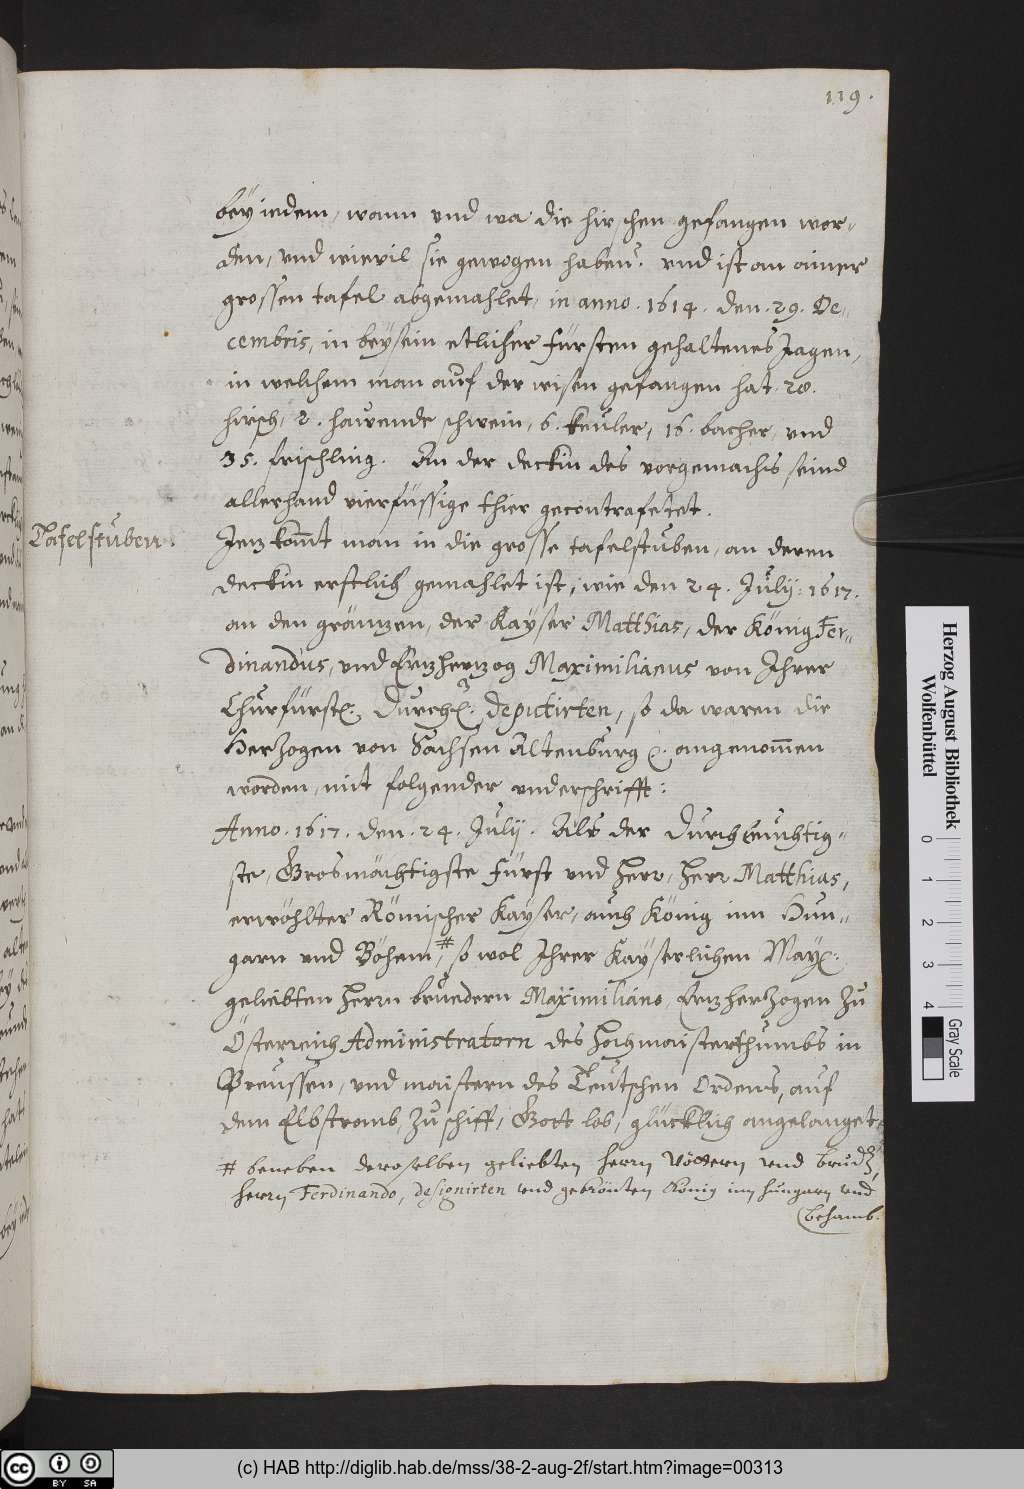 119.
beÿ iedem, wann vnd wa die hirschen gefangen wor-
den, vnd wievil sie gewogen haben: vnd ist an ainer
grossen tafel abgemahlet, in anno. 1614. den. 29. De-
cembris, in beÿsein etlicher fürsten gehaltenes Jagen,
in welchem man auf der wisen gefangen hat. 28.
hirsch, 2. hawende schwein, 6. keuler, 16. bacher, vnd
35. frischling. An der deckin des vorgemachs seind
allerhand vierfüssige thier gecontrafetet.
Tafelstuben.
Jenz kom̄t man in die grosse tafelstuben, an deren
deckin erstlich gemahlet ist, wie den 24. Julij: 1617.
an den gränzen, der Kaÿser Matthias, der König Fer-
dinandus, vnd Erzherzog Maximilianus von Ihrer
Churfürstl: Durchl: deputirten, so da waren die
Herzogen von Sachsen Altenburg angenom̄en
worden, mit folgender vnderschrifft:
Anno. 1617. den. 24. Julij. Als der Durchleuchtig-
ste, Grosmächtigste fürst vnd Herr, Herr Matthias,
erwöhlter Römischer Kaÿser, auch König inn Hun-
garn vnd Böhem,# so wol Ihrer Kaÿserlichen Maÿ:
geliebten Herrn bruedern Maximiliano, Erzherzogen zu
Österreich Administratorn des Hochmaisterthumbs in
Preussen, vnd maistern des Teutschen Ordens, auf
dem Elbstromb, zu schiff, Gott lob, glücklich angelanget
# beneben deroselben geliebten herrn vöttern vnd brud
herrn Ferdinando, designirten vnd gekrönten König inn hungarn vnd
Behamb.
Herzog August Bibliothek
Wolfenbüttel
0 1 2 3 4
Gray Scale
cc BY SA
(c) HAB http://diglib.hab.de/mss/38-2-aug-2f/start.htm?image=00313